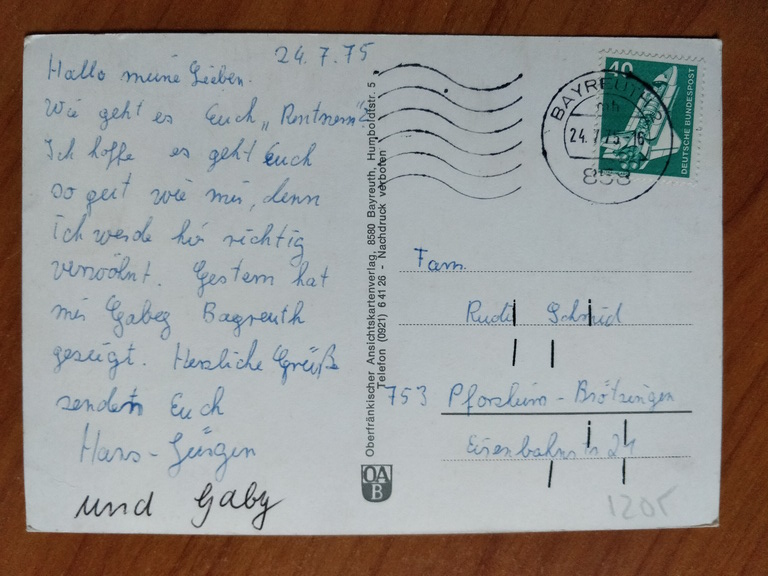 24.7.75
Hallo meine Lieben.
Wie geht es Euch „Rentnern"?
Ich hoffe es geht Euch
so gut wie mir, denn
ich werde hier richtig
verwöhnt. Gestern hat
mir Gabey Bayreuth
gezeigt. Herzliche Grüße
senden Euch
Hans-Jürgen
und Gaby
Oberfränkischer Ansichtskartenverlag, 8580 Bayreuth, Humboldtstr. 5
Telefon (0921) 6 41 26 - Nachdruck verboten
OA
B
40
DEUTSCHE BUNDESPOST
BAYREUTH
mh
24.7.75-16
858
Fam.
Rudi Schmid
753 Pforzheim-Brötzingen
Eisenbahnstr 24
1205